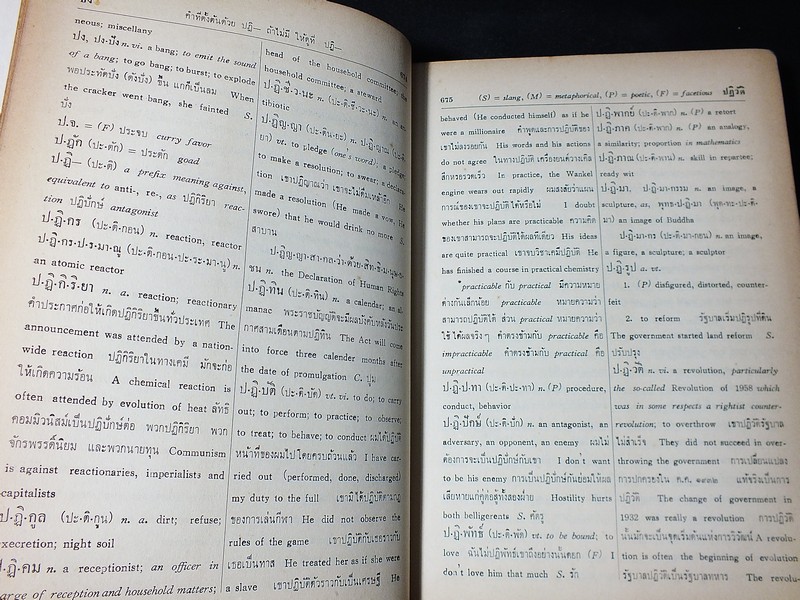 คำที่ตั้งต้นด้วย ปฏิ— ถ้าไม่มี ให้ดูที่ ปฏิ—
neous; miscellany
ปัง, ปัง-ปัง n. vi. a bang; to emit the sound
of a bang; to go bang; to burst; to explode
พอประทัดปัง (ดังปัง) ขึ้น แกก็เป็นลม When
the cracker went bang, she fainted S.
ปัง
ป.จ. = (F) ประจบ curry favor
ปฏัก (ปะ-ตัก) = ประตัก goad
ปฏิ— (ปะ-ติ) a prefix meaning against,
equivalent to anti-, re-, as ปฏิกิริยา reac-
tion ปฏิปักษ์ antagonist
ป·ฏิ·กร (ปะ-ติ-กอน) n. reaction, reactor
ป·ฏิ·กร·ป·ร·มา·ณู (ปะ-ติ-กอน-ปะ-ระ-มา-นู) n.
an atomic reactor
ป·ฏิ·กิ·ริ·ยา n. a. reaction; reactionary
คำประกาศก่อให้เกิดปฏิกิริยาขึ้นทั่วประเทศ The
announcement was attended by a nation-
wide reaction ปฏิกิริยาในทางเคมี มักจะก่อ
ให้เกิดความร้อน A chemical reaction is
often attended by evolution of heat ลัทธิ
คอมมิวนิสม์เป็นปฏิปักษ์ต่อ พวกปฏิกิริยา พวก
จักรพรรดิ์นิยม และพวกนายทุน Communism
is against reactionaries, imperialists and
capitalists
ป·ฏิ·กูล (ปะ-ติ-กูน) n. a. dirt; refuse;
excretion; night soil
ป·ฏิ·คม n. a receptionist; an officer in
charge of reception and household matters;
head of the household committee; the
household committee; a steward
ป·ฏิ·ชี·ว·นะ n. (ปะ-ติ-ชี-วะ-นะ) n. an an-
tibiotic
ป·ฏิ·ญญา (ปะ-ติน-ยะ)
ยา) vt. to pledge (one's word); a pledge;
to make a resolution; to swear; a declara-
tion เขาปฏิญาณว่า เขาจะไม่ดื่มเหล้าอีก He
made a resolution (He made a vow, He
swore) that he would drink no more S.
สาบาน
ป·ฏิญ·ญา·สา·กล·ว่า·ด้วย·สิท·ธิ·ม·นุษ·ย·
ชน n. the Declaration of Human Rights
ป·ฏิ·ทิน (ปะ-ติ-ทิน) n. a calendar; an al-
manac พระราชบัญญัติจะมีผลบังคับหลังวันประ
กาศสามเดือนตามปฏิทิน The Act will come
into force three calender months after
the date of promulgation C. ปูม
ป·ฏิ·บัติ (ปะ-ติ-บัด) vt. vi. to do; to carry
out; to perform; to practice; to observe;
to treat; to behave; to conduct ผมได้ปฏิบัติ
หน้าที่ของผมไปโดยครบถ้วนแล้ว I have car-
ried out (performed, done, discharged)
my duty to the full เขามิได้ปฏิบัติตามกฎ
ของการเล่นกีฬา He did not observe the
rules of the game เขาปฏิบัติกับเธอราวกับ
เธอเป็นทาส He treated her as if she were
a slave เขาปฏิบัติตัวราวกับเป็นเศรษฐี He
675 (S) = slang, (M) = metaphorical, (P) = poetic, (F) = facetious ปฏิวัติ
behaved (He conducted himself) as if he
were a millionaire คำพูดและการปฏิบัติของ
เขาไม่ลงรอยกัน His words and his actions
do not agree ในทางปฏิบัติ เครื่องยนต์วางเคิล
สึกหรอรวดเร็ว In practice, the Wankel
engine wears out rapidly ผมสงสัยว่าแผน
การณ์ของเขาจะปฏิบัติได้หรือไม่ I doubt
whether his plans are practicable ความคิด
ของเขาสามารถจะปฏิบัติได้ผลทีเดียว His ideas
are quite practical เขาจบวิชาเคมีปฏิบัติ He
has finished a course in practical chemistry
practicable กับ practical มีความหมาย
ต่างกันเล็กน้อย practicable หมายความว่า
สามารถปฏิบัติได้ ส่วน practical หมายความว่า
ใช้ได้ผลจริงๆ คำตรงข้ามกับ practicable คือ
impracticable คำตรงข้ามกับ practical คือ
unpractical
ป·ฏิ·ป·ทา (ปะ-ติ-ปะ-ทา) n. (P) procedure,
conduct, behavior
ป·ฏิ·ปักษ์ (ปะ-ติ-ปัก) n. an antagonist, an
adversary, an opponent, an enemy ผมไม่
ต้องการจะเป็นปฏิปักษ์กับเขา I don't want
to be his enemy การเป็นปฏิปักษ์กันย่อมให้ผล
เสียหายแก่คู่ต่อสู้ทั้งสองฝ่าย Hostility hurts
both belligerents S. ศัตรู
ป·ฏิ·พัทธ์ (ปะ-ติ-พัด) vt. to be bound; to
love ฉันไม่ปฏิพัทธ์เขาถึงอย่างนั้นดอก (F) I
don't love him that much S. รัก
ป·ฏิ·พากย์ (ปะ-ติ-พาก) n. (P) a retort
ป·ฏิ·ภาค (ปะ-ติ-พาก) n. (P) an analogy,
a similarity; proportion in mathematics
ป·ฏิ·ภาณ (ปะ-ติ-พาน) n. skill in repartee;
ready wit
ป·ฏิ·มา, ป·ฏิ·มา·กรรม n. an image, a
sculpture, as, พุทธ-ป·ฏิ·มา (พุด-ทะ-ปะ-ติ-
มา) an image of Buddha
ป·ฏิ·มา·กร (ปะ-ติ-มา-กอน) n. an image,
a figure, a sculpture; a sculptor
ป·ฏิ·รูป a. vt.
1. (P) disfigured, distorted, counter-
feit
2. to reform รัฐบาลเริ่มปฏิรูปที่ดิน
The government started land reform S.
ปรับปรุง
ป·ฏิ·วัติ n. vi. a revolution, particularly
the so-called Revolution of 1958 which
was in some respects a rightist counter-
revolution; to overthrow เขาปฏิวัติรัฐบาล
ไม่สำเร็จ They did not succeed in over-
throwing the government การเปลี่ยนแปลง
การปกครองใน ค.ศ. ๑๙๓๒ แท้จริงเป็นการ
ปฏิวัติ The change of government in
1932 was really a revolution การปฏิวัติ
นั้นมักจะเป็นจุดเริ่มต้นแห่งการวิวัฒน์ A revolu-
tion is often the beginning of evolution
รัฐบาลปฏิวัติเป็นรัฐบาลทหาร The revolu-